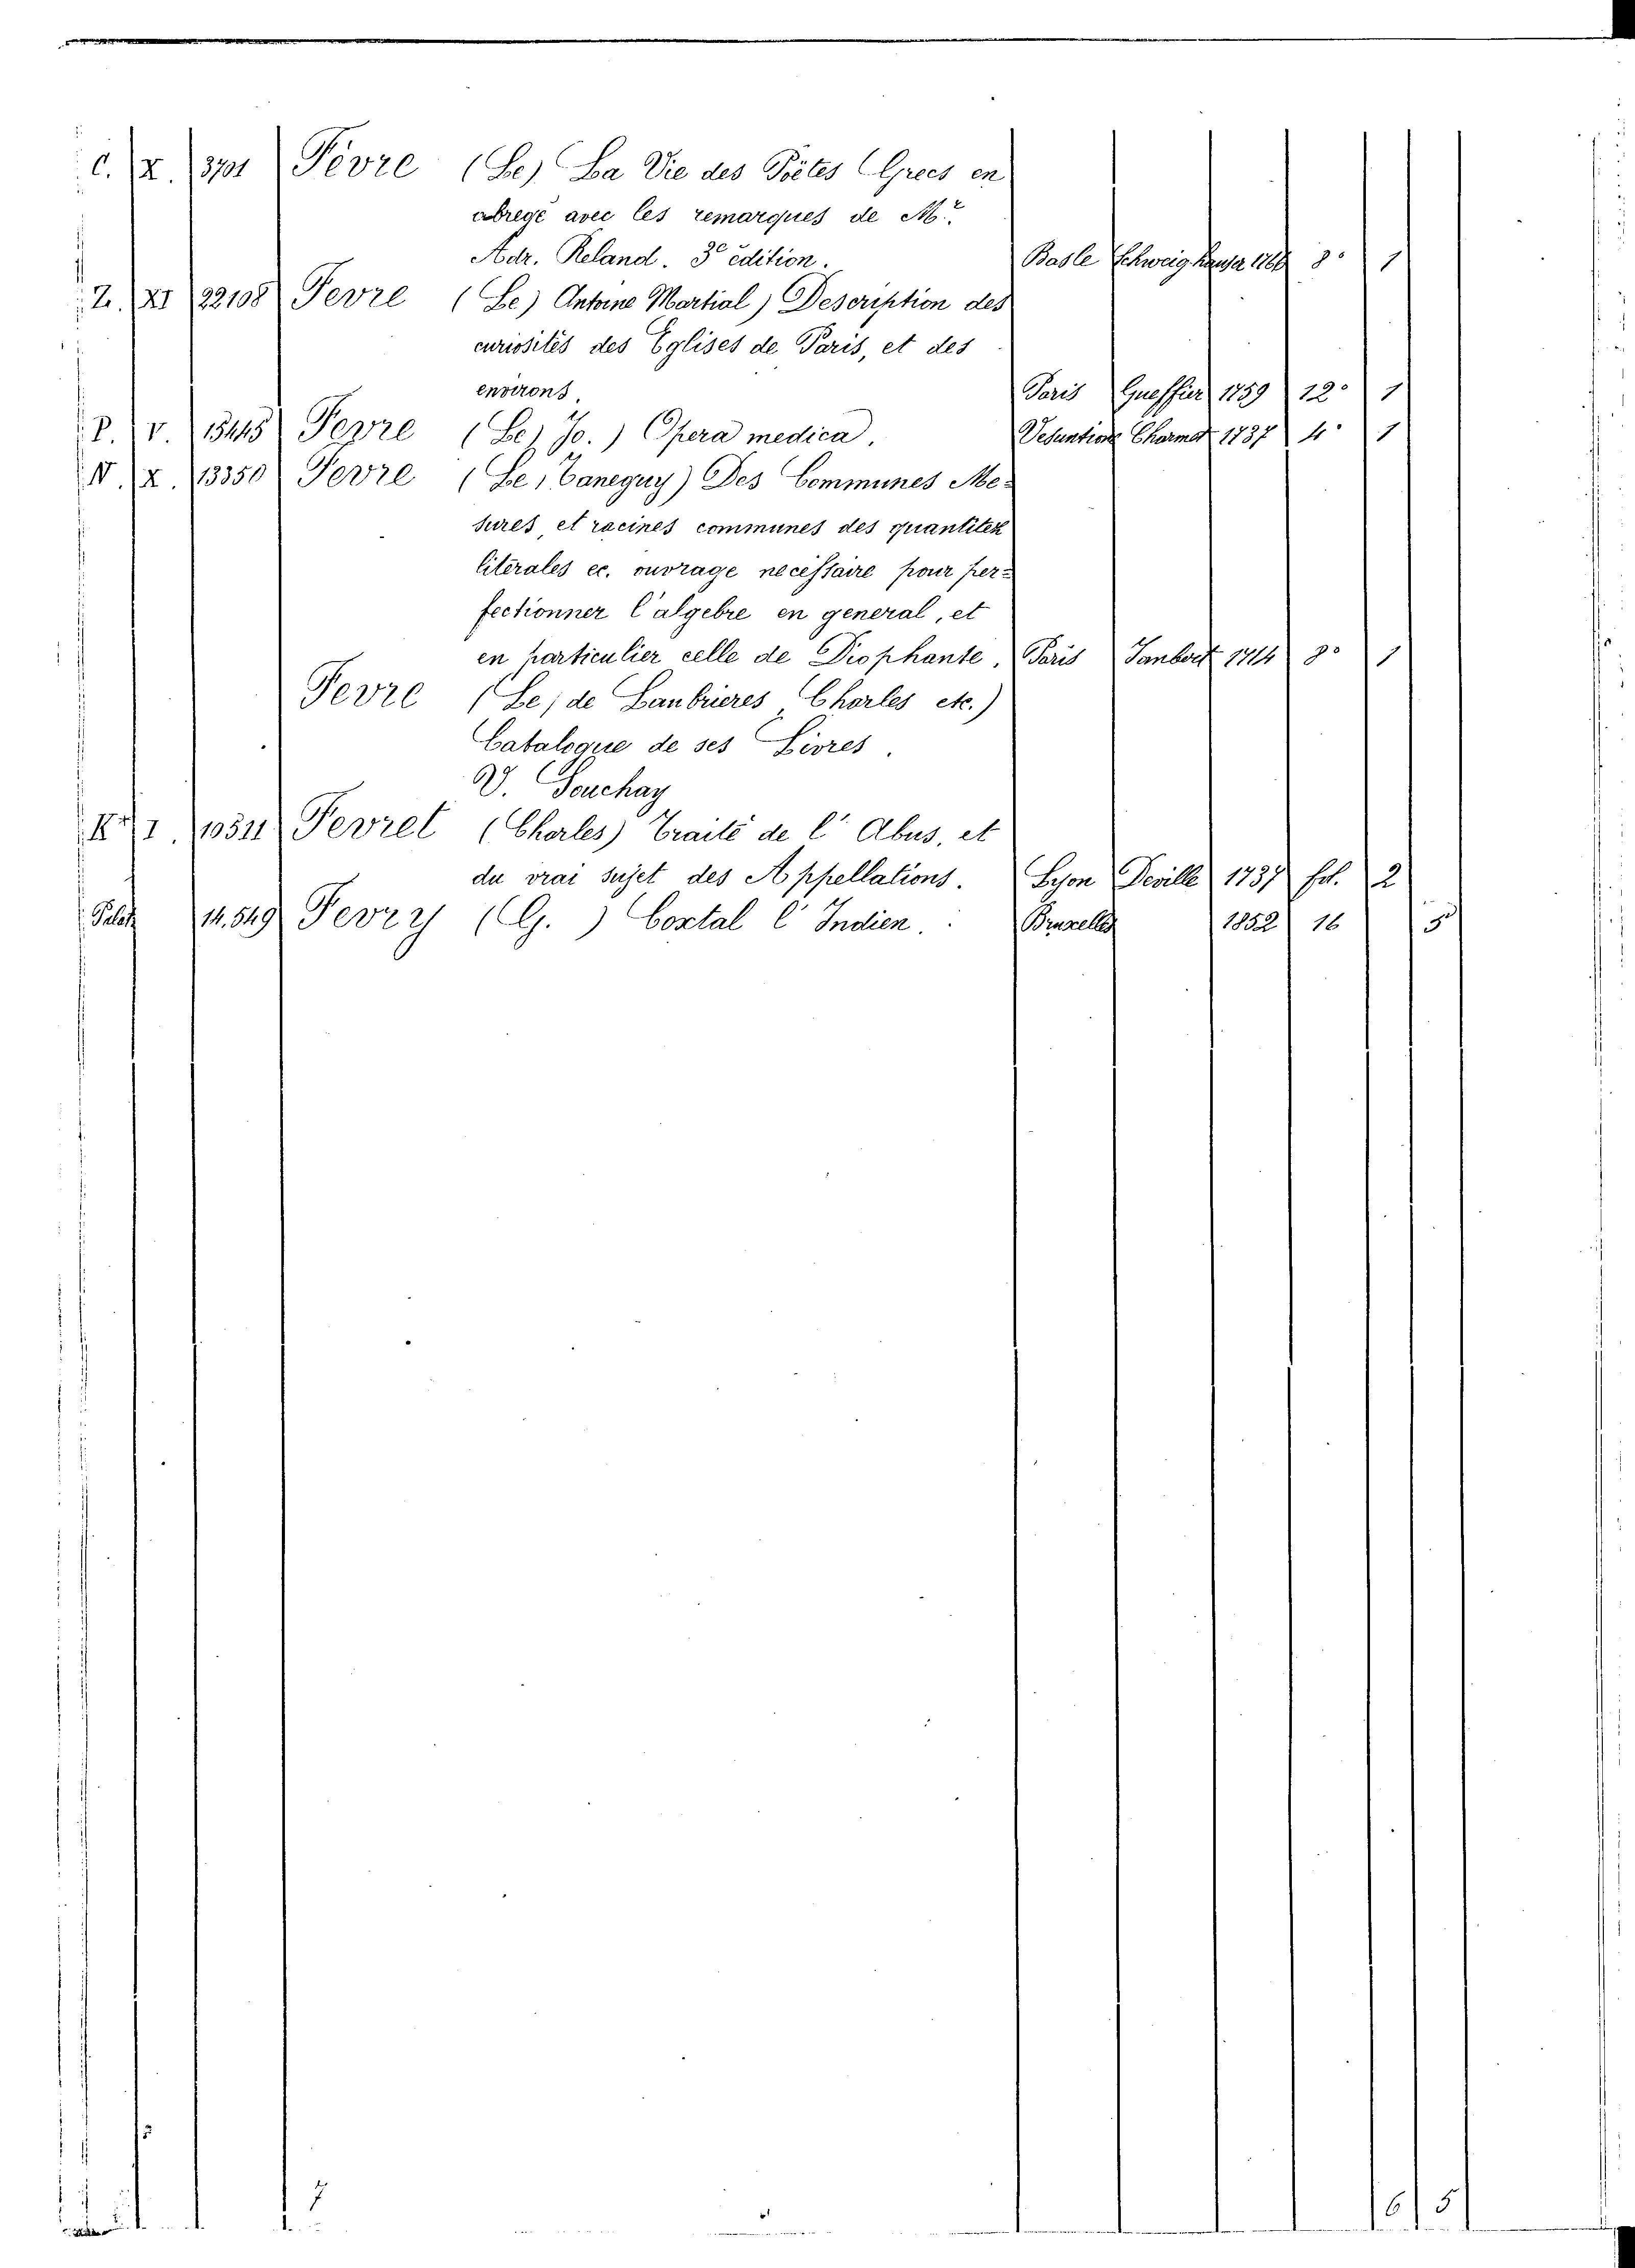 C. X. 3701 Fèvre (Le) La Vie des Poëtes Grecs en
abregé avec les remarques de Mr.
Adr. Reland. 3e edition. Basle Schweighauser 1766 8° 1
Z. XI 22108 Fevre (Le) Antoine Martial) Description des
curiosités des Eglises de Paris, et des
environs. Paris Gueffier 1759 12° 1
P. V. 15445 Fevre (Le) Jo.) Opera medica. Vesuntione Charmet 1737 4° 1
N. X. 13350 Fevre (Le, Caneguy) Des Communes Me-
sures, et racines communes des quantitez
literales ec. ouvrage necessaire pour per=
fectionner l'algebre en general, et
en particulier celle de Diophante. Paris Jambert 1714 8° 1
Fevre (Le, de Laubrieres, Charles etc.)
Catalogue de ses Livres.
V. Souchay
I. 10511 Fevret (Charles) Traité de l'Abus, et
du vrai sujet des Appellations. Lyon Deville 1737 fol. 2
14.549 Fevry (G.) Coxtal l'Indien. Bruxelles 1852 16 5
7 6 5